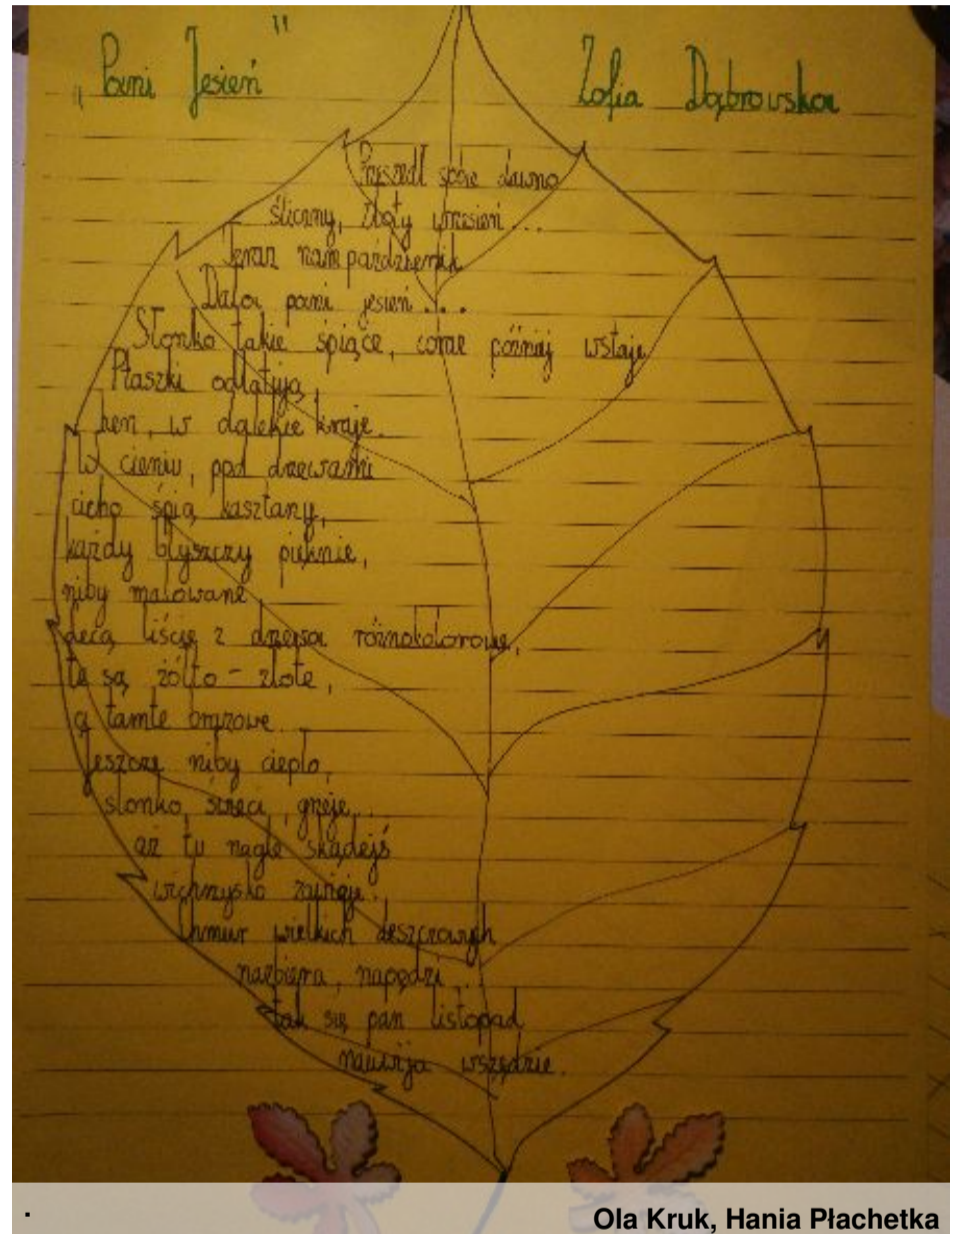 „Pani Jesień”
Zofia Dąbrowska
Przyszedł sobie dawno
śliczny, złoty wrzesień...
Teraz nam październik
Dała pani jesień...
Słonko takie śpiące, coraz później wstaje
Ptaszki odlatują,
hen, w dalekie kraje.
W cieniu, pod drzewami
cicho śpią kasztany,
każdy błyszczy pięknie,
niby malowane
Lecą liście z drzewa różnokolorowe,
te są żółto-złote,
a tamte brązowe...
Jeszcze niby ciepło,
słonko świeci, grzeje...
aż tu nagle skądejś
wichrzysko zawieje.
Chmur wielkich deszczowych
nazbiera, napędzi...
tak się pan listopad
nauwija wszędzie.
.
Ola Kruk, Hania Płachetka